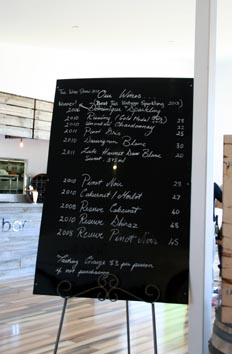 Our Wines
Winner (Best Tas Vintage Sparkling 2013)
2006 Dominique Sparkling
2010 Riesling (Gold Medal) 25
2010 Unwooded Chardonnay 32
2011 Pinot Gris 25
2010 Sauvignon Blanc 30
2011 Late Harvest Sauv Blanc 20
Sweet 375ml
2010 Pinot Noir 29
2010 Cabernet / Merlot 27
2008 Reserve Cabernet 40
2010 Reserve Shiraz 45
2008 Reserve Pinot Noir 45
Tasting Charge $3 per person
if not purchasing
bar